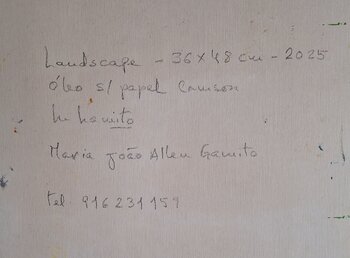 Landscape - 36 x 48 cm - 2025
Óleo s/ papel Canson
Maria João Allen Gamito
tel. 916231159